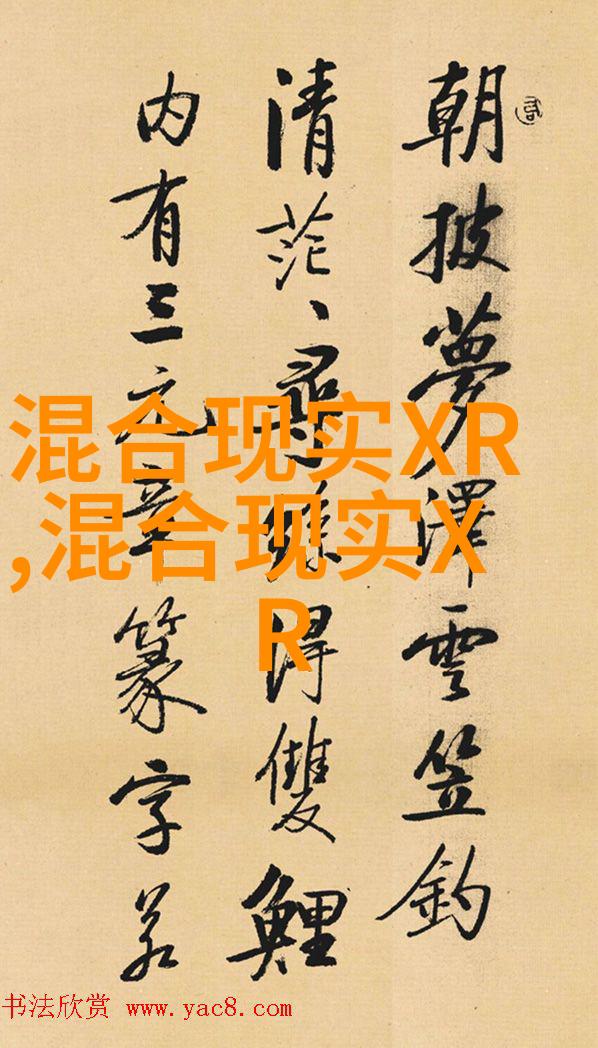 朝披夢澤雲笠釣
清茫、尋絲得雙鯉
内有三元章篆字若
混合现实XR
,混合现实X
R
书法欣赏 www.yac8.com